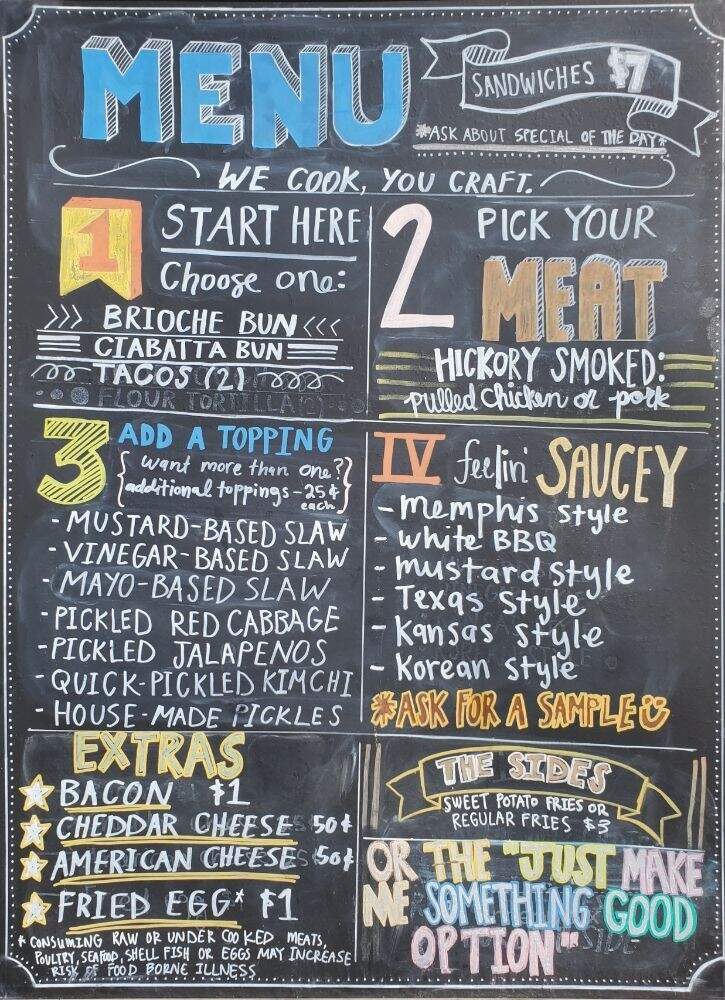 MENU
SANDWICHES $7
*ASK ABOUT SPECIAL OF THE DAY*
WE COOK, YOU CRAFT.
1 START HERE
Choose one:
BRIOCHE BUN
CIABATTA BUN
TACOS (2)
FLOUR TORTILLA (2)
2 PICK YOUR
MEAT
HICKORY SMOKED:
pulled chicken or pork
3 ADD A TOPPING
{want more than one?
additional toppings - 25¢
each}
- MUSTARD-BASED SLAW
- VINEGAR-BASED SLAW
- MAYO-BASED SLAW
- PICKLED RED CABBAGE
- PICKLED JALAPENOS
- QUICK-PICKLED KIMCHI
- HOUSE-MADE PICKLES
IV feelin' SAUCEY
- Memphis style
- white BBQ
- mustard style
- Texas style
- Kansas style
- Korean style
*ASK FOR A SAMPLE
EXTRAS
BACON $1
CHEDDAR CHEESE 50¢
AMERICAN CHEESE 50¢
FRIED EGG* $1
* CONSUMING RAW OR UNDER COOKED MEATS,
POULTRY, SEAFOOD, SHELL FISH OR EGGS MAY INCREASE
RISK OF FOOD BORNE ILLNESS
THE SIDES
SWEET POTATO FRIES OR
REGULAR FRIES $3
OR THE "JUST MAKE
ME SOMETHING GOOD
OPTION"